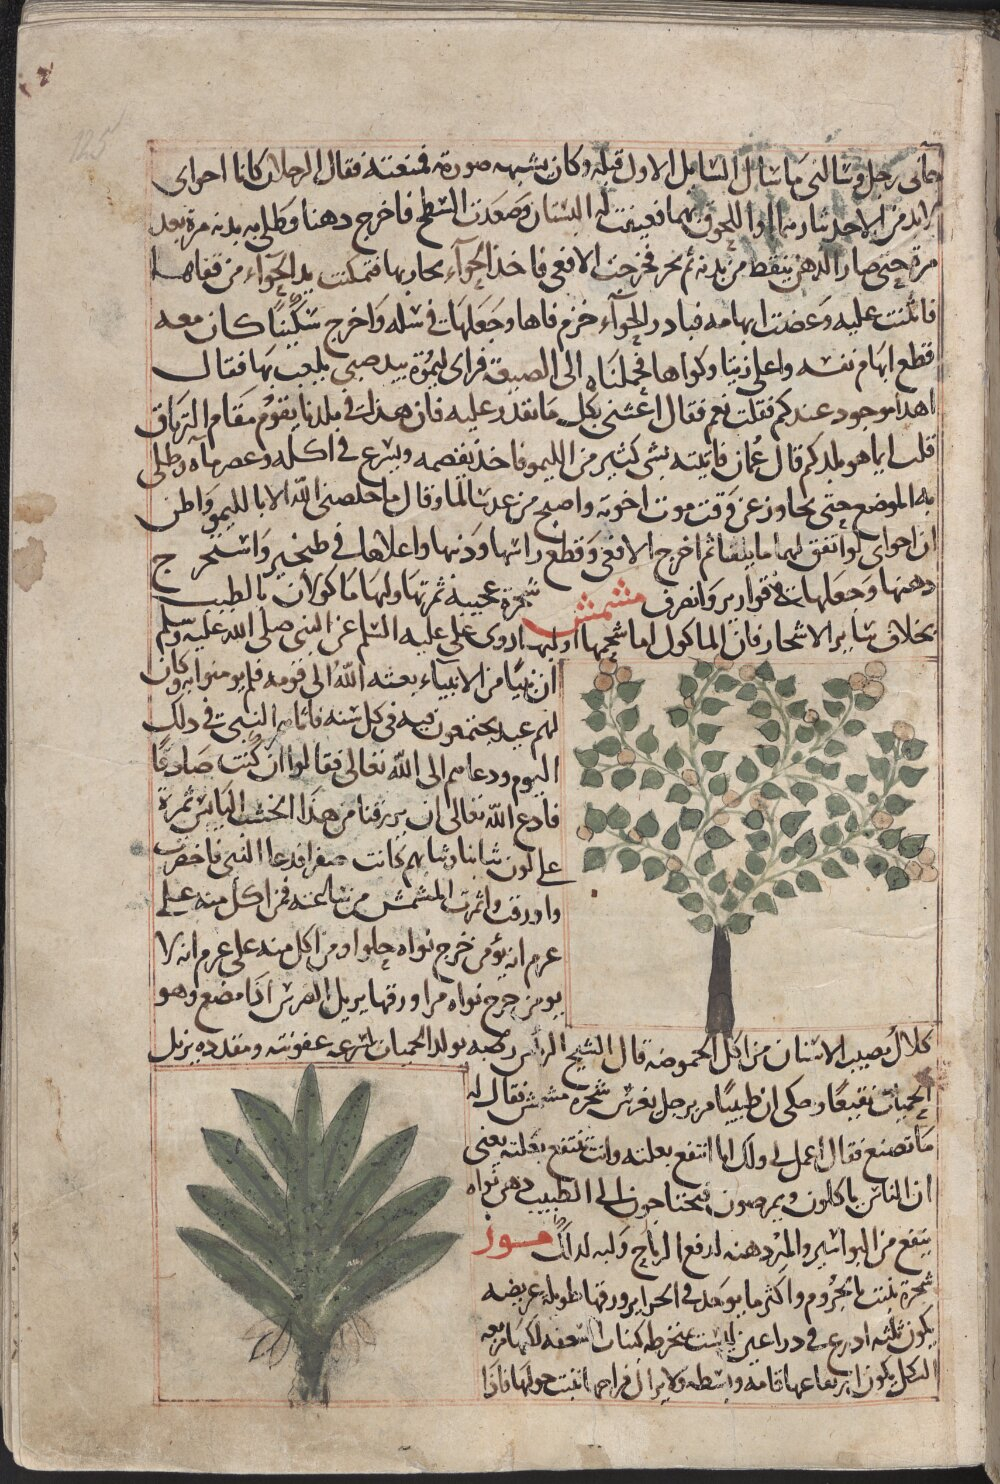 125
جاٰنى رجل وسالنى ما سال السايل الاول قبله وكان يشبهه صورة فمنعته فقال الرجل ان كانا اخواى
اللحوق بهما فعينت له البستان وصعدت السطح فاخرج دهنا وطلى به بدنه مرة بعد
مرة حتى صار الدهن ينقط من بدنه ثم بخر فخرجت الافعى فاخذ الحوآء يحاربها فتمكنت يد الحوآء من قفاها
فانثنت عليه وعضت ابهامه فبادر الحوآء خزم فاها وجعلها فى سله واخرج سكينا كان معه
قطع ابهام نفسه واغلى زيتا وكواها فحملناه الى الضيعة فراى ليموة بيد صبى يلعب بها فقال
اهذا موجود عندكم فقلت نعم فقال اغثنى بكل ما تقدر عليه فان هذا فى بلدنا يقوم مقام الترياق
قلت ايما هو بلدكم قال عُمان فاتيته بشى كثير من الليمو فاخذ يقضمه ويسرع فى اكله وعصر ماه وطلى
به الموضع حتى تجاوز عن وقت موت اخوته واصبح من غد سالما وقال ما خلصنى الله الا بالليمو واظن
ان اخواى لو اتفق لهما ما تلفا ثم اخرج الافعى وقطع راسها وذنبها واغلاها فى طنجير واستخرج
دهنها وجعلها فى قوارير وانصرف مشمش شجرة عجيبة ثمرتها ولبها ماكولان بالطيب
بخلاف ساير الاشجار فان الماكول اما شحمها او لبها روى على عليه السلم عن النبى صلى الله عليه وسلم
ان نبيًا من الانبيآء بعثه الله الى قومه فلم يومنوا به وكان
لهم عيد يجتمعون فيه فى كل سنة فاتاهم النبى فى ذلك
اليوم ودعاهم الى الله تعالى فقالوا ان كنت صادقا
فادع الله تعالى ان يرزقنا من هذا الخشب اليابس ثمرة
على لون ثيابنا وثيابهم كانت صفرا فدعا النبى فاخضرت
واورقت واثمرت المشمش من ساعته فمن اكل منه على
عزم ان يؤمن خرج نواه حلوا ومن اكل منه على عزم انه لا
يومن خرج نواه مرا ورقها يزيل الضرس اذا مضغ وهو
كلال يصيب الاسنان من اكل الحموضة قال الشيخ الرئيس رطبه يولد الحميات لسرعة عفونته ومقدده يزيل
الحميات نقيعًا وحكى ان طبيبًا مر برجل يغرس شجرة مشمش فقال له
ما تصنع فقال اعمل لى ولك انا انتفع بغلته وانت تنتفع بغلته يعنى
ان الناس ياكلون ويمرضون فيحتاجون الى الطبيب دهن نواه
ينفع من البواسير والمر دهنه لدفع الرياح ولبه لذلك موز
شجرة تنبت بالجروم واكثر ما يوجد فى الجزاير ورقها طويلة عريضه
يكون ثلثة اذرع فى ذراعين ليست منخرطة كنبات السعفه لكنها مربعه
الشكل يكون ارتفاعها قامة وبسطة ولا يزال فراخها تنبت حولها فاذا